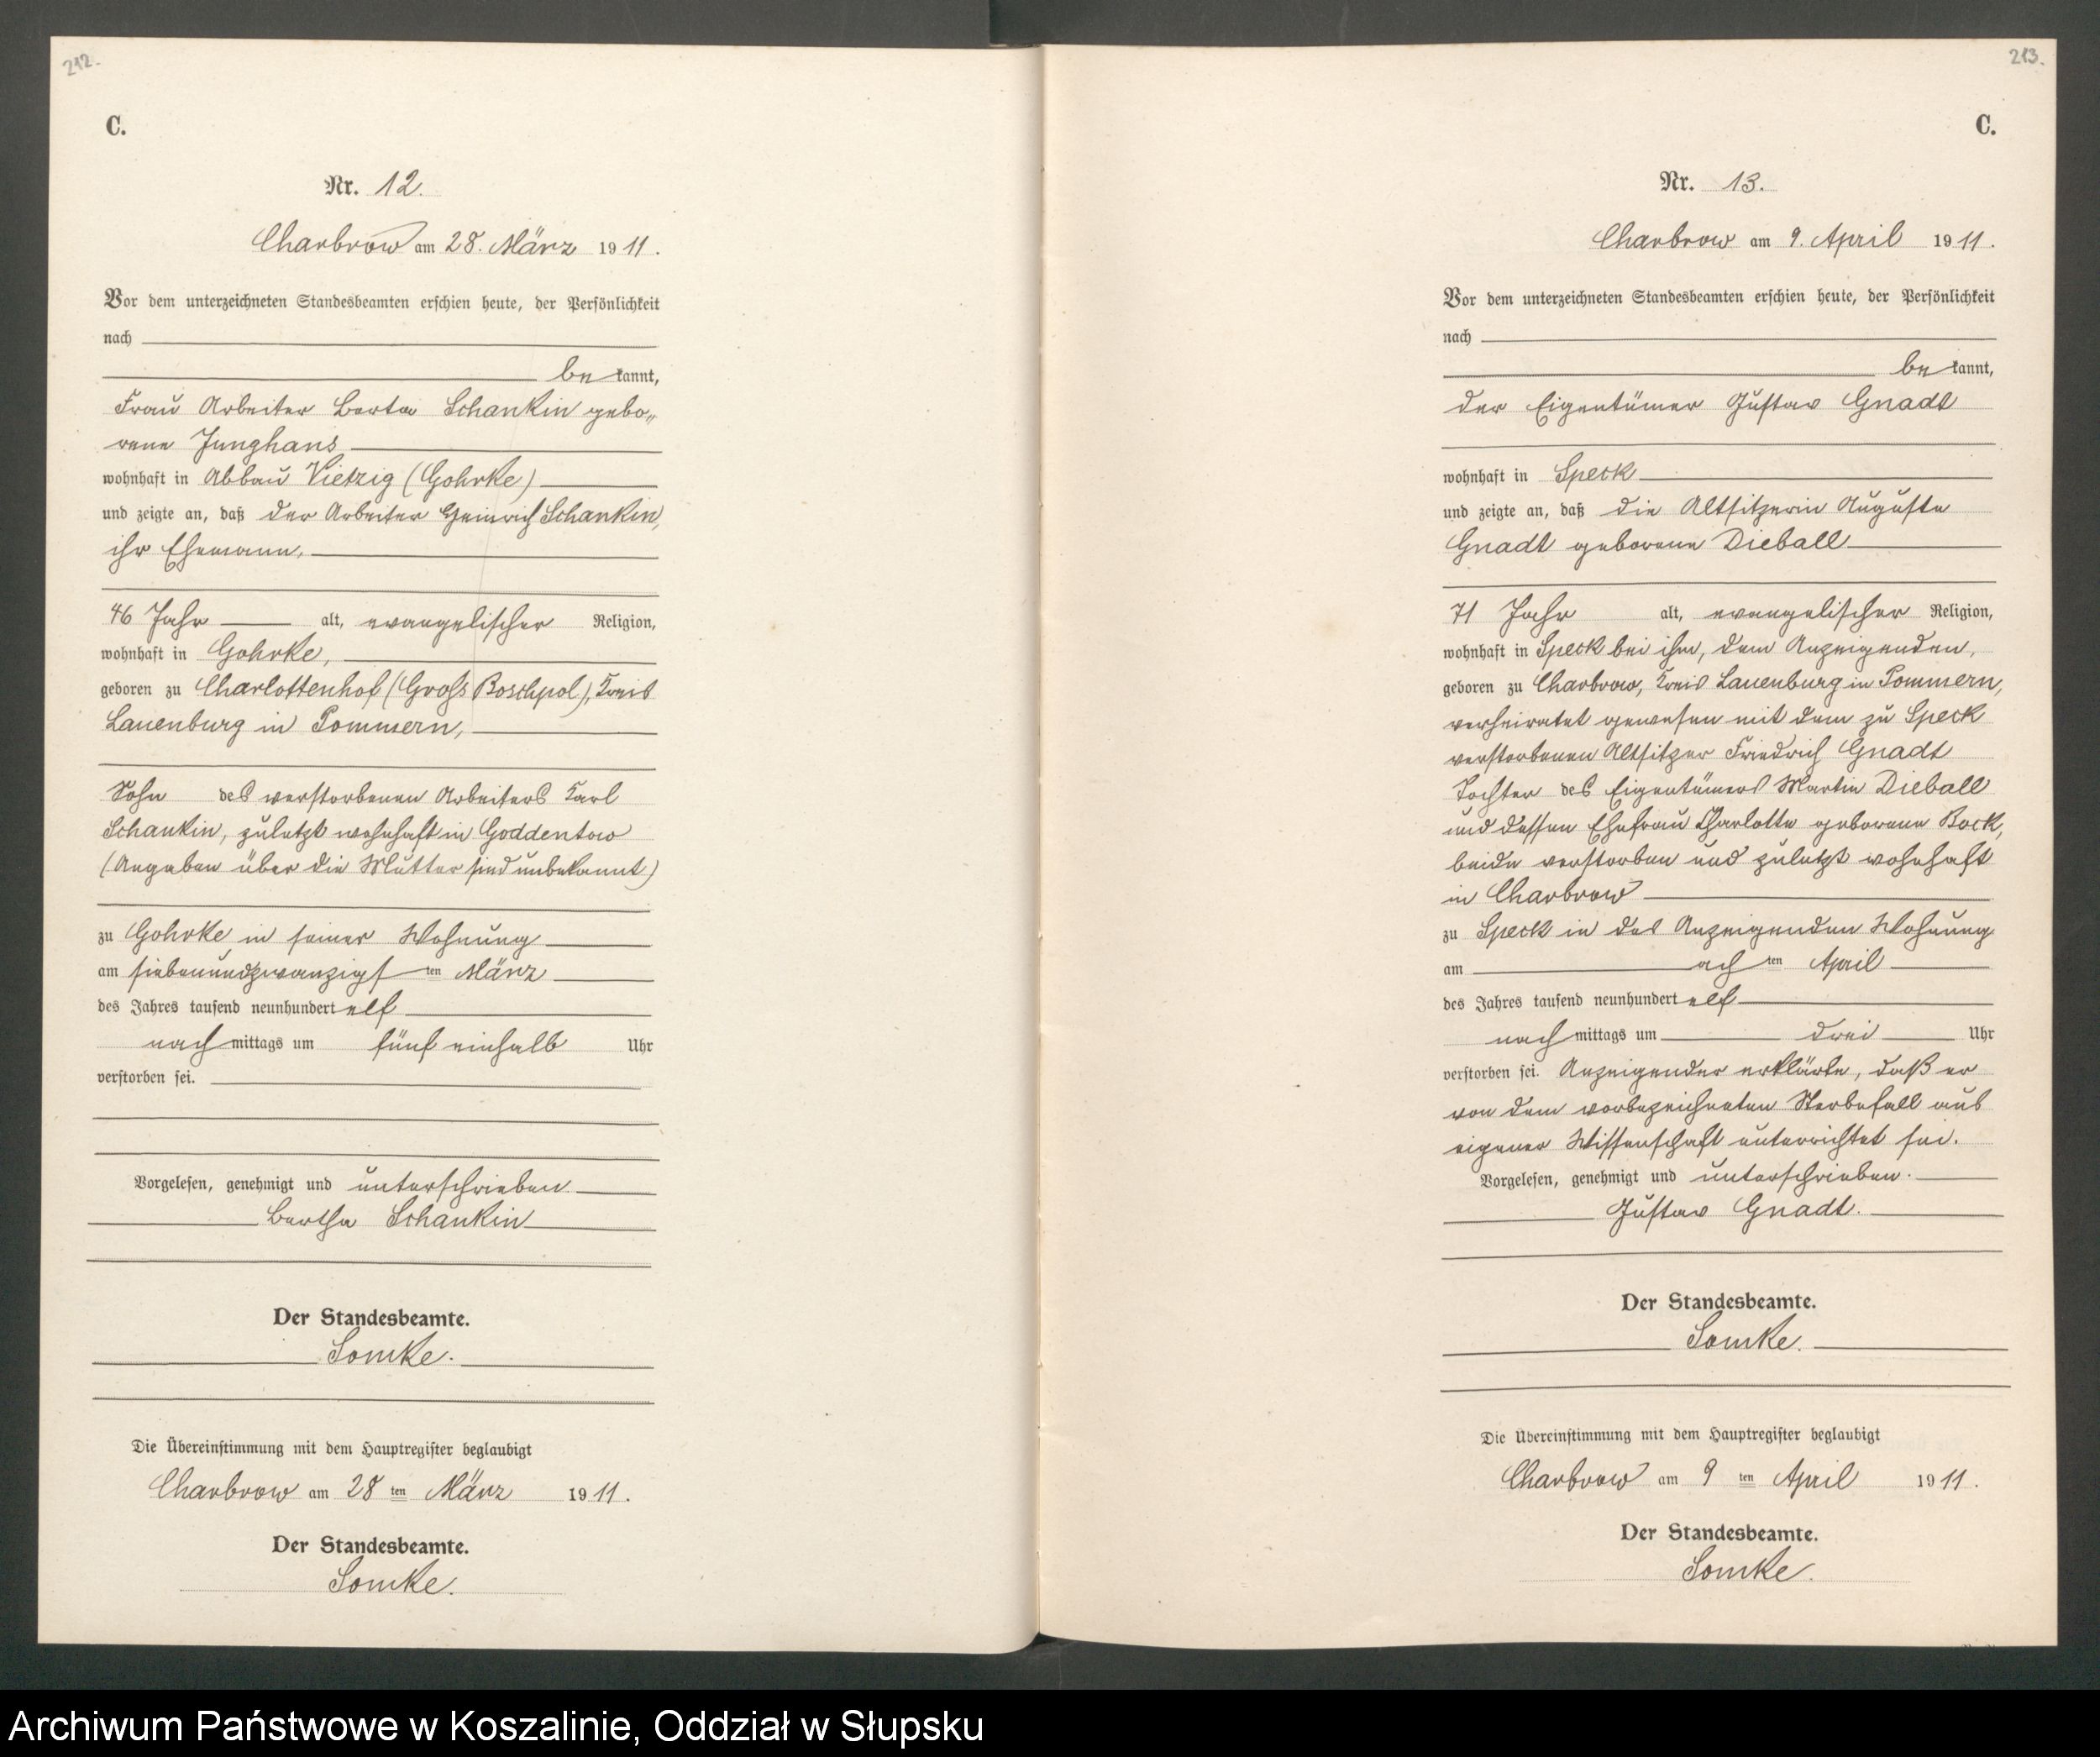 212.
C.
Nr. 12.
Charbrow am 28. März 1911.
Vor dem unterzeichneten Standesbeamten erschien heute, der Persönlichkeit
nach
be kannt,
Frau Arbeiter Berta Schankin gebo„
rene Junghans
wohnhaft in Abbau Vietzig (Gohrke)
und zeigte an, daß der Arbeiter Heinrich Schankin,
ihr Ehemann,
46 Jahr alt, evangelischer Religion,
wohnhaft in Gohrke,
geboren zu Charlottenhof (Gross Boschpol), Kreis
Lauenburg in Pommern,
Sohn des verstorbenen Arbeiters Karl
Schankin, zuletzt wohnhaft in Goddentow
(Angaben über die Mutter sind unbekannt)
zu Gohrke in seiner Wohnung
am siebenundzwanzigsten März
des Jahres tausend neunhundert elf
nach mittags um fünf einhalb Uhr
verstorben sei.
Vorgelesen, genehmigt und unterschrieben.
Bertha Schankin
Der Standesbeamte.
Somke.
Die Übereinstimmung mit dem Hauptregister beglaubigt
Charbrow am 28 ten März 1911.
Der Standesbeamte.
Somke.
213.
C.
Nr. 13.
Charbrow am 9. April 1911.
Vor dem unterzeichneten Standesbeamten erschien heute, der Persönlichkeit
nach
be kannt,
der Eigentümer Gustav Gnadt
wohnhaft in Speck
und zeigte an, daß die Altsitzerin Auguste
Gnadt geborene Dieball
71 Jahr alt, evangelischer Religion,
wohnhaft in Speck bei ihm, dem Anzeigenden,
geboren zu Charbrow, Kreis Lauenburg in Pommern,
verheiratet gewesen mit dem zu Speck
verstorbenen Altsitzer Friedrich Gnadt
Tochter des Eigentümers Martin Dieball
und dessen Ehefrau Charlotte geborene Bock,
beide verstorben und zuletzt wohnhaft
in Charbrow
zu Speck in des Anzeigenden Wohnung
am achten April
des Jahres tausend neunhundert elf
nach mittags um drei Uhr
verstorben sei. Anzeigender erklärte, daß er
von dem vorbezeichneten Sterbefall aus
eigener Wissenschaft unterrichtet sei.
Vorgelesen, genehmigt und unterschrieben.
Gustav Gnadt.
Der Standesbeamte.
Somke.
Die Übereinstimmung mit dem Hauptregister beglaubigt
Charbrow am 9 ten April 1911.
Der Standesbeamte.
Somke.
Archiwum Państwowe w Koszalinie, Oddział w Słupsku